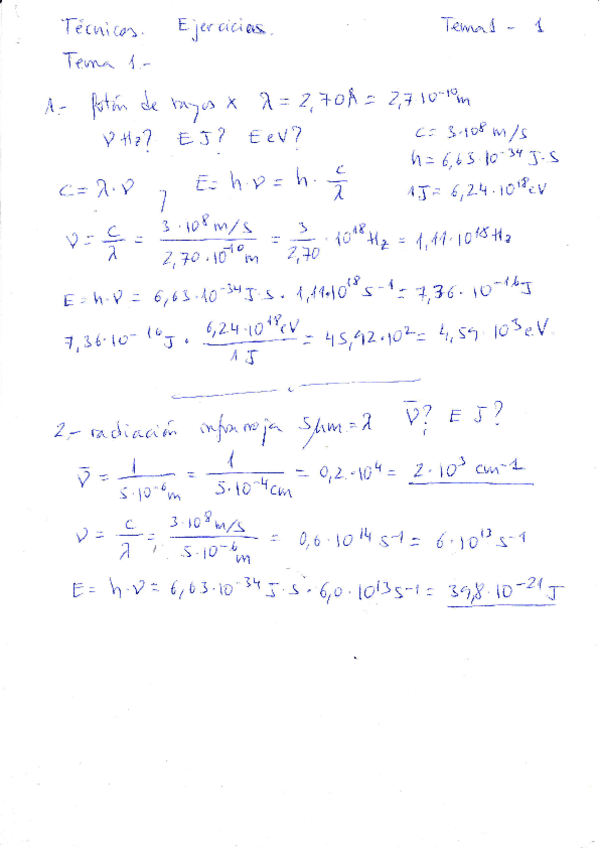 Técnicas. Ejercicios. Tema 1 - 1
Tema 1.-
1.- fotón de rayos x λ = 2,70Å = 2,7·10⁻¹⁰m
ν Hz? E J? E eV? c = 3·10⁸ m/s
h = 6,63·10⁻³⁴ J·s
c = λ·ν , E = h·ν = h· c/λ 1J = 6,24·10¹⁸ eV
ν = c/λ = 3·10⁸ m/s / 2,70·10⁻¹⁰ m = 3/2,70 · 10¹⁸ Hz = 1,11·10¹⁸ Hz
E = h·ν = 6,63·10⁻³⁴ J·s · 1,11·10¹⁸ s⁻¹ = 7,36·10⁻¹⁶ J
7,36·10⁻¹⁶ J · 6,24·10¹⁸ eV / 1 J = 45,92·10² = 4,59·10³ eV.
2.- radiación infrarroja 5μm = λ ν̄? E J?
ν̄ = 1 / 5·10⁻⁶ m = 1 / 5·10⁻⁴ cm = 0,2·10⁴ = 2·10³ cm⁻¹
ν = c/λ = 3·10⁸ m/s / 5·10⁻⁶ m = 0,6·10¹⁴ s⁻¹ = 6·10¹³ s⁻¹
E = h·ν = 6,63·10⁻³⁴ J·s · 6,0·10¹³ s⁻¹ = 39,8·10⁻²¹ J